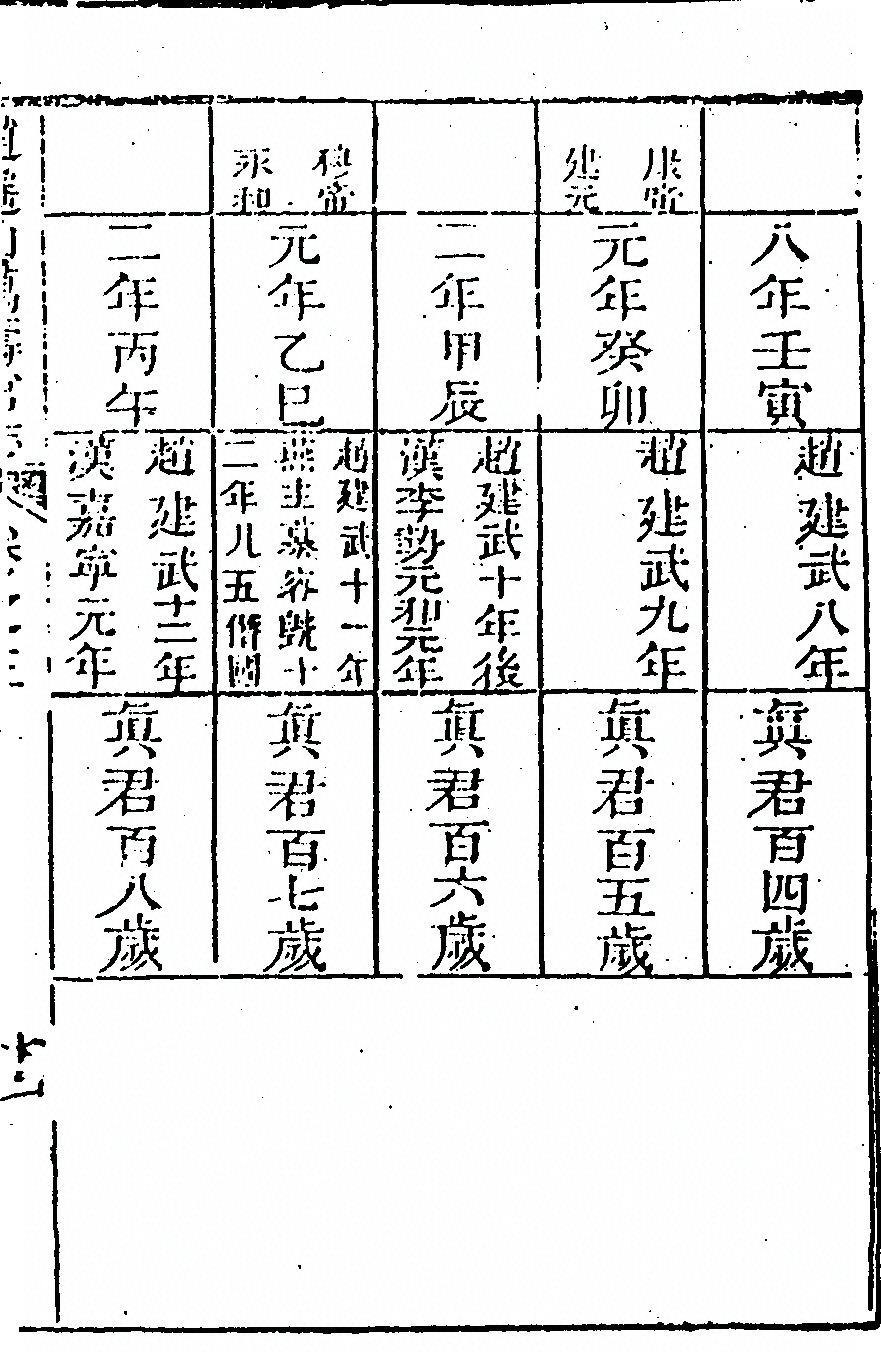 八年壬寅
趙建武八年
眞君百四歲
康帝
建元
元年癸卯
趙建武九年
眞君百五歲
二年甲辰
趙建武十年後
漢李勢元和元年
眞君百六歲
穆帝
永和
元年乙巳
趙建武十一年
燕主慕容皝十
二年凡五僭國
眞君百七歲
二年丙午
趙建武十二年
漢嘉寧元年
眞君百八歲